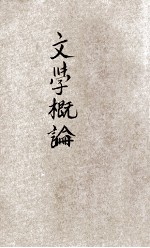 文學概論